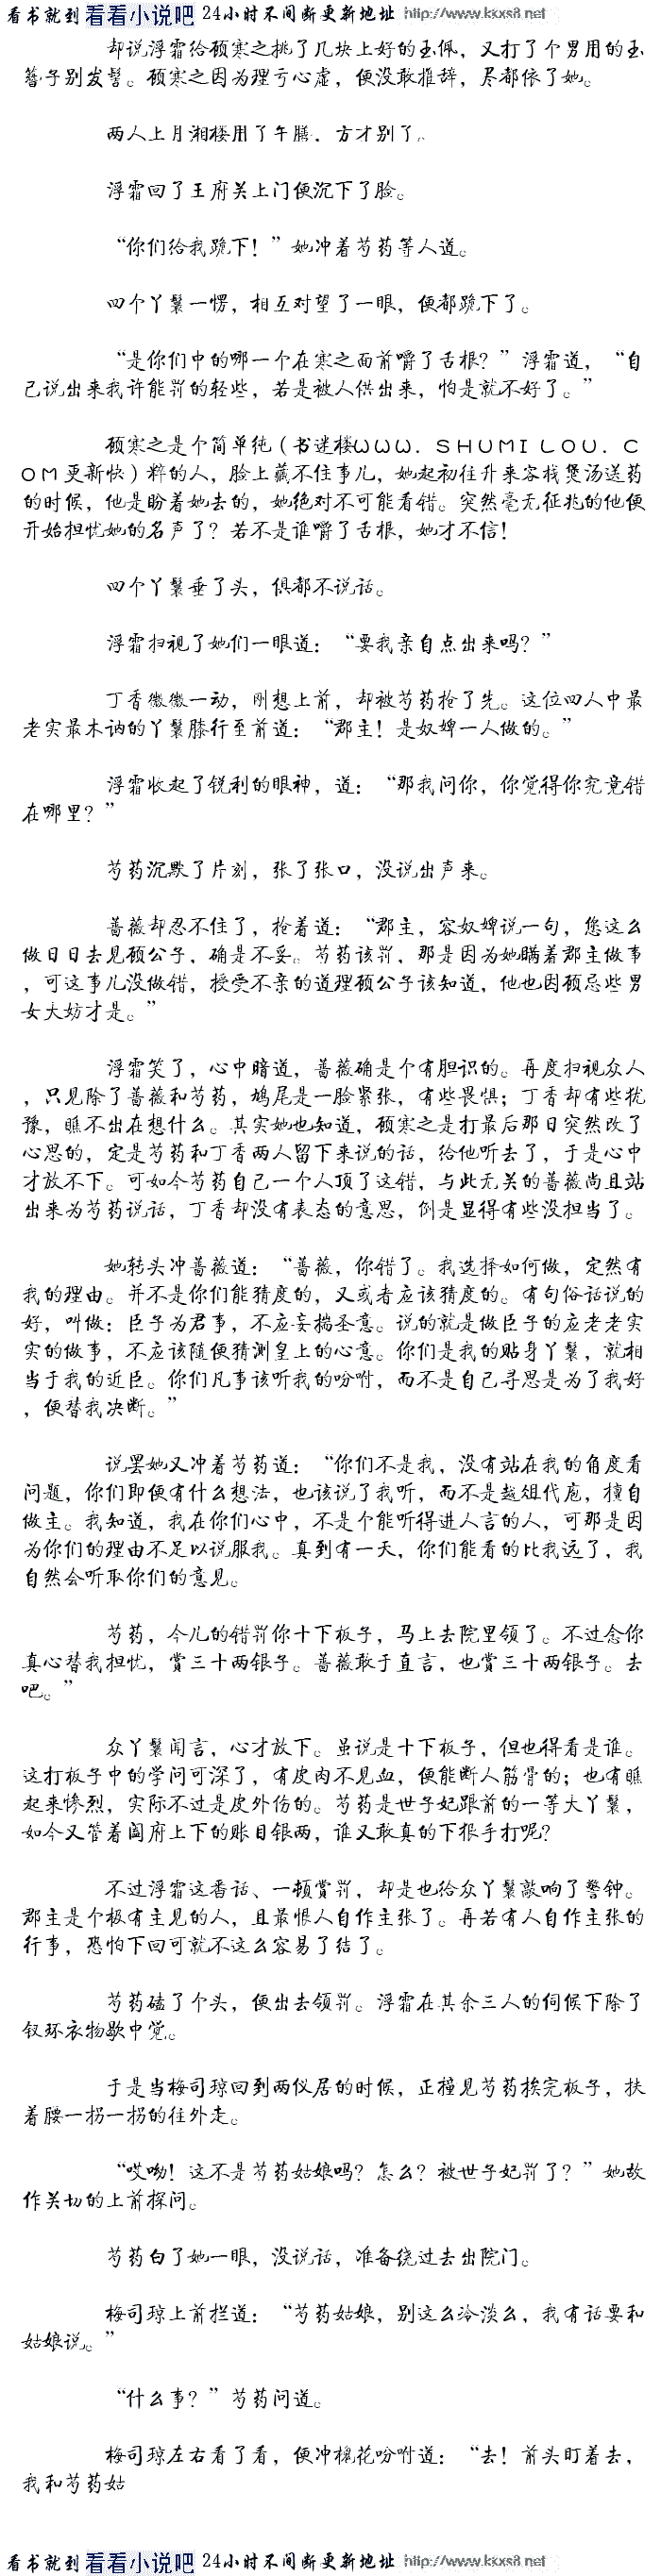 看书就到 看看小说吧 24小时不间断更新地址 http://www.kkxs8.net
却说浮霜给顾寒之挑了几块上好的玉佩，又打了个男用的玉
簪子别发髻。顾寒之因为理亏心虚，便没敢推辞，尽都依了她。
两人上月湘楼用了午膳，方才别了。
浮霜回了王府关上门便沉下了脸。
“你们给我跪下！”她冲着芍药等人道。
四个丫鬟一愣，相互对望了一眼，便都跪下了。
“是你们中的哪一个在寒之面前嚼了舌根？”浮霜道，“自
己说出来我许能罚的轻些，若是被人供出来，怕是就不好了。”
顾寒之是个简单纯（书迷楼ＷＷＷ．ＳＨＵＭＩＬＯＵ．Ｃ
ＯＭ更新快）粹的人，脸上藏不住事儿，她起初往升来客栈煲汤送药
的时候，他是盼着她去的，她绝对不可能看错。突然毫无征兆的他便
开始担忧她的名声了？若不是谁嚼了舌根，她才不信！
四个丫鬟垂了头，俱都不说话。
浮霜扫视了她们一眼道：“要我亲自点出来吗？”
丁香微微一动，刚想上前，却被芍药抢了先。这位四人中最
老实最木讷的丫鬟膝行至前道：“郡主！是奴婢一人做的。”
浮霜收起了锐利的眼神，道：“那我问你，你觉得你究竟错
在哪里？”
芍药沉默了片刻，张了张口，没说出声来。
蔷薇却忍不住了，抢着道：“郡主，容奴婢说一句，您这么
做日日去见顾公子，确是不妥。芍药该罚，那是因为她瞒着郡主做事
，可这事儿没做错，授受不亲的道理顾公子该知道，他也因顾忌些男
女大妨才是。”
浮霜笑了，心中暗道，蔷薇确是个有胆识的。再度扫视众人
，只见除了蔷薇和芍药，鸠尾是一脸紧张，有些畏惧；丁香却有些犹
豫，瞧不出在想什么。其实她也知道，顾寒之是打最后那日突然改了
心思的，定是芍药和丁香两人留下来说的话，给他听去了，于是心中
才放不下。可如今芍药自己一个人顶了这错，与此无关的蔷薇尚且站
出来为芍药说话，丁香却没有表态的意思，倒是显得有些没担当了。
她转头冲蔷薇道：“蔷薇，你错了。我选择如何做，定然有
我的理由。并不是你们能猜度的，又或者应该猜度的。有句俗话说的
好，叫做：臣子为君事，不应妄揣圣意。说的就是做臣子的应老老实
实的做事，不应该随便猜测皇上的心意。你们是我的贴身丫鬟，就相
当于我的近臣。你们凡事该听我的吩咐，而不是自己寻思是为了我好
，便替我决断。”
说罢她又冲着芍药道：“你们不是我，没有站在我的角度看
问题，你们即便有什么想法，也该说了我听，而不是越俎代庖，擅自
做主。我知道，我在你们心中，不是个能听得进人言的人，可那是因
为你们的理由不足以说服我。真到有一天，你们能看的比我远了，我
自然会听取你们的意见。
芍药，今儿的错罚你十下板子，马上去院里领了。不过念你
真心替我担忧，赏三十两银子。蔷薇敢于直言，也赏三十两银子。去
吧。”
众丫鬟闻言，心才放下。虽说是十下板子，但也得看是谁。
这打板子中的学问可深了，有皮肉不见血，便能断人筋骨的；也有瞧
起来惨烈，实际不过是皮外伤的。芍药是世子妃跟前的一等大丫鬟，
如今又管着阖府上下的账目银两，谁又敢真的下狠手打呢？
不过浮霜这番话、一顿赏罚，却是也给众丫鬟敲响了警钟。
郡主是个极有主见的人，且最恨人自作主张了。再若有人自作主张的
行事，恐怕下回可就不这么容易了结了。
芍药磕了个头，便出去领罚。浮霜在其余三人的伺候下除了
钗环衣物歇中觉。
于是当梅司琼回到两仪居的时候，正撞见芍药挨完板子，扶
着腰一拐一拐的往外走。
“哎呦！这不是芍药姑娘吗？怎么？被世子妃罚了？”她故
作关切的上前探问。
芍药白了她一眼，没说话，准备绕过去出院门。
梅司琼上前拦道：“芍药姑娘，别这么冷淡么，我有话要和
姑娘说。”
“什么事？”芍药问道。
梅司琼左右看了看，便冲槐花吩咐道：“去！前头盯着去，
我和芍药姑
看书就到 看看小说吧 24小时不间断更新地址 http://www.kkxs8.net